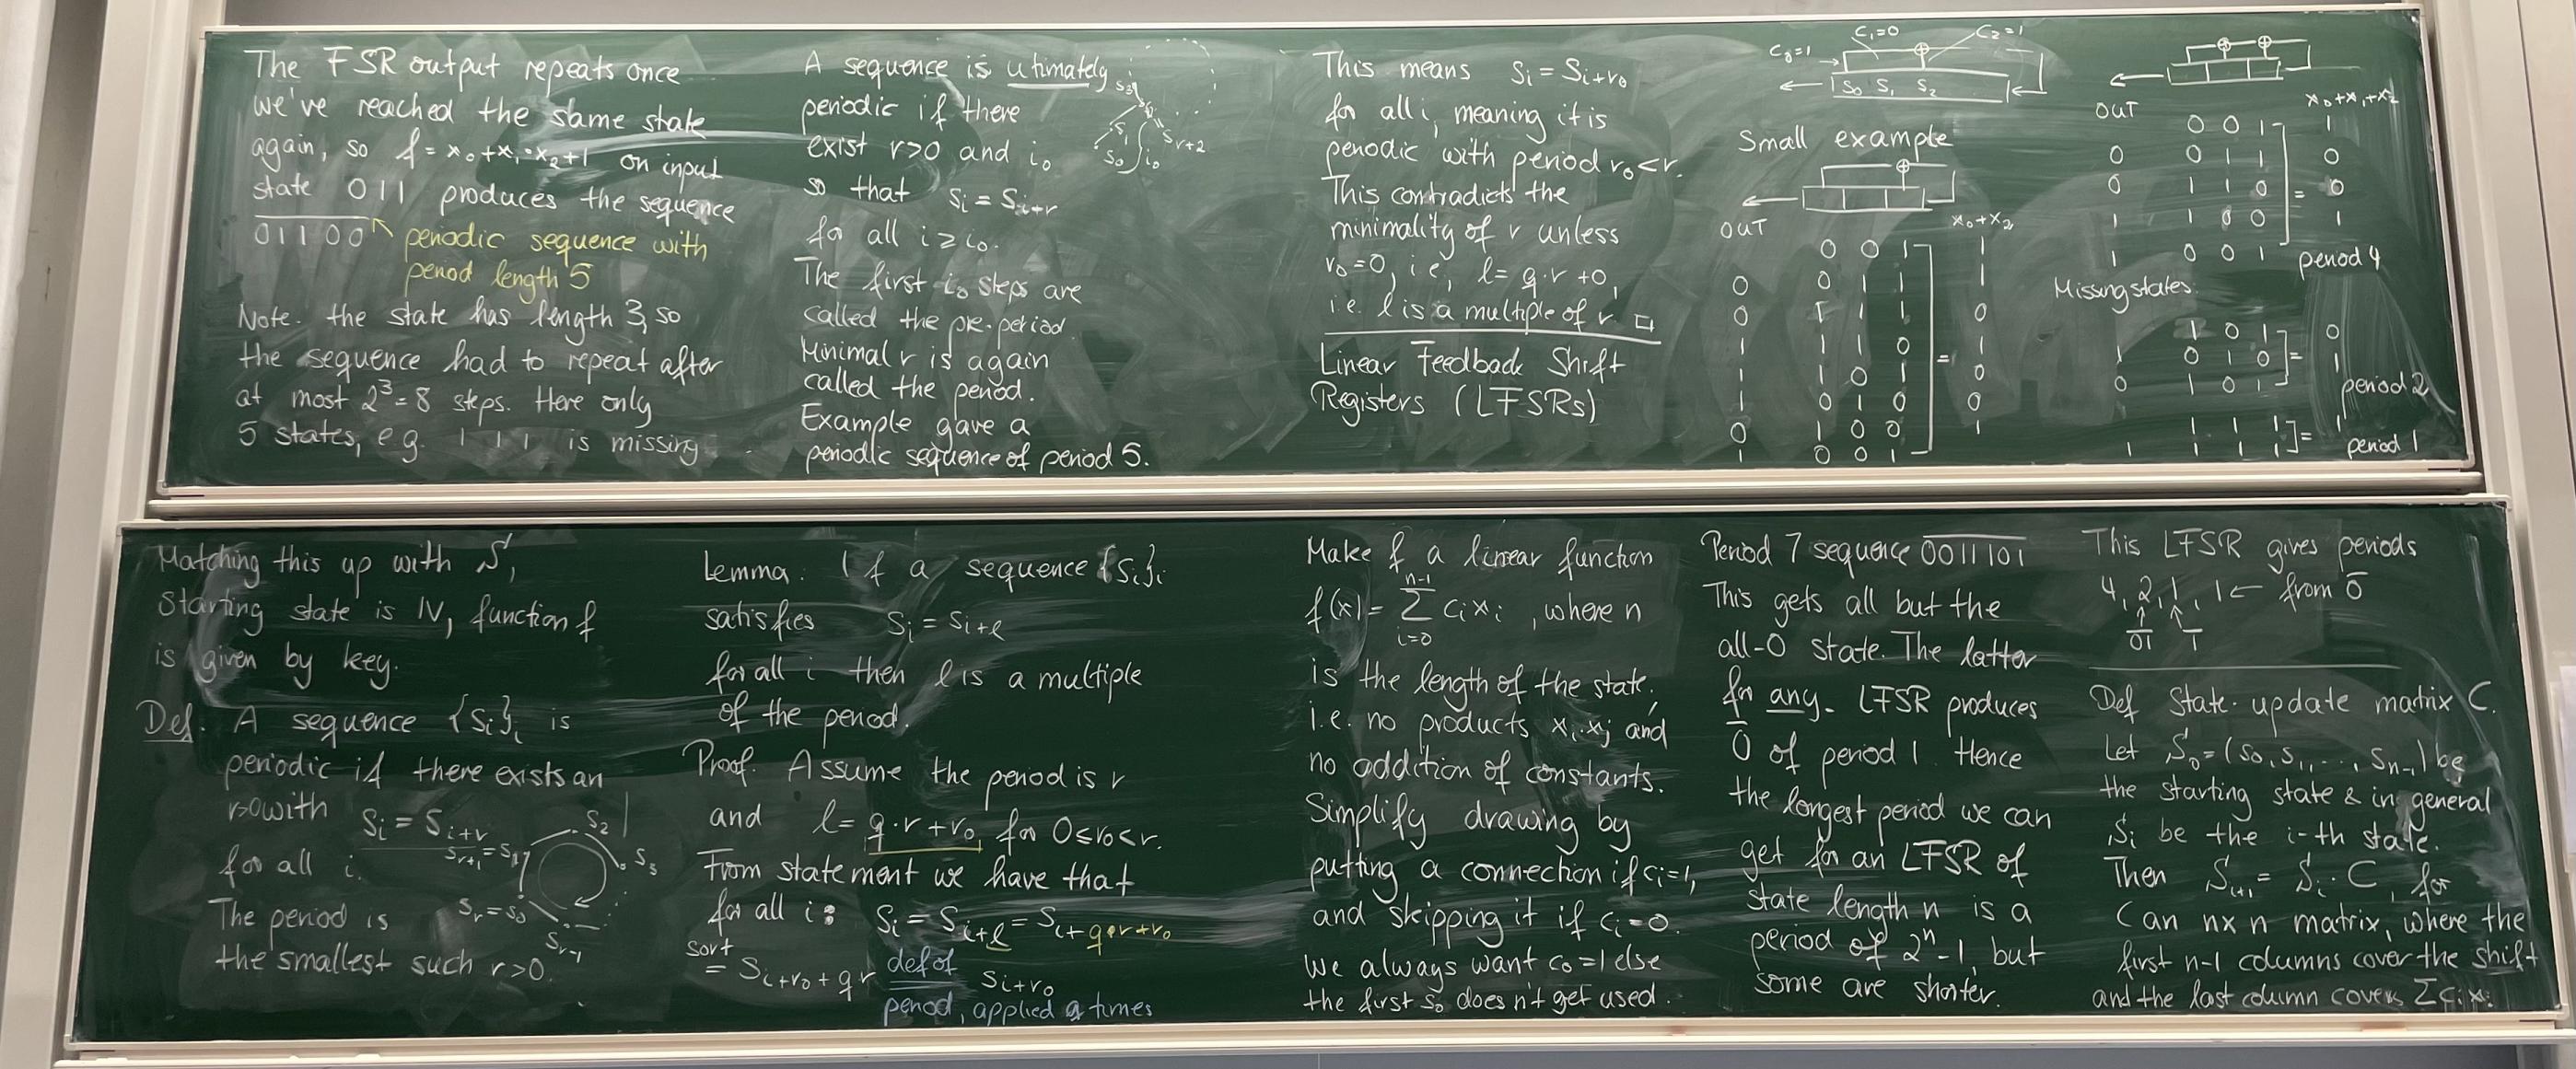 The FSR output repeats once
we've reached the same state
again, so f = x₀+x₁·x₂+1 on input
state 011 produces the sequence
01100 periodic sequence with
period length 5
Note. the state has length 3, so
the sequence had to repeat after
at most 2³=8 steps. Here only
5 states, e.g. 111 is missing
A sequence is utimately
periodic if there
exist r>0 and i₀
so that sᵢ = sᵢ₊ᵣ
for all i≥i₀.
The first i₀ steps are
called the pre-period
Minimal r is again
called the period.
Example gave a
periodic sequence of period 5.
s₀ s₁ s₃ i₀ sᵣ₊₂
This means sᵢ = sᵢ₊ᵣ₀
for all i, meaning it is
periodic with period r₀<r.
This contradicts the
minimality of r unless
r₀=0, i.e, l = q·r+0,
i.e. l is a multiple of r. □
Linear Feedback Shift
Registers (LFSRs)
c₀=1 c₁=0 c₂=1
s₀ s₁ s₂
Small example
OUT x₀+x₂
0 0 1 1
0 0 1 1 1
0 1 1 1 0
1 1 1 0 = 1
1 1 0 1 0
1 0 1 0 0
0 1 0 0 1
1 0 0 1
OUT x₀+x₁+x₂
0 0 1 1
0 0 1 1 0
0 1 1 0 = 0
1 1 0 0 1
1 0 0 1 period 4
Missing states.
1 0 1 0
1 0 1 0 = 1
0 1 0 1 period 2
1 1 1 = 1
1 1 1 1 period 1
Matching this up with S,
starting state is IV, function f
is given by key.
Def. A sequence {sᵢ}ᵢ is
periodic if there exists an
r>0 with sᵢ = sᵢ₊ᵣ
for all i.
The period is
the smallest such r>0.
sᵣ₊₁=s₁ s₂ s₃
sᵣ=s₀ sᵣ₋₁
Lemma. If a sequence {sᵢ}ᵢ
satisfies sᵢ = sᵢ₊ₗ
for all i then l is a multiple
of the period.
Proof. Assume the period is r
and l = q·r+r₀ for 0≤r₀<r.
From statement we have that
for all i: sᵢ = sᵢ₊ₗ = s_{i+q·r+r₀}
sort
= s_{i+r₀+qr} def of s_{i+r₀}
period, applied q times
Make f a linear function
f(x) = Σ_{i=0}^{n-1} cᵢxᵢ, where n
is the length of the state,
i.e. no products xᵢ·xⱼ and
no addition of constants.
Simplify drawing by
putting a connection if cᵢ=1,
and skipping it if cᵢ=0.
We always want c₀=1 else
the first s₀ does n't get used.
Period 7 sequence 0011101
This gets all but the
all-0 state. The latter
for any LFSR produces
0̄ of period 1. Hence
the longest period we can
get for an LFSR of
state length n is a
period of 2ⁿ-1, but
some are shorter.
This LFSR gives periods
4, 2, 1, 1 ← from 0̄
01 1
Def State-update matrix C.
Let S₀=(s₀,s₁,..., sₙ₋₁) be
the starting state & in general
Sᵢ be the i-th state.
Then Sᵢ₊₁ = Sᵢ·C, for
C an n×n matrix, where the
first n-1 columns cover the shift
and the last column covers Σcᵢxᵢ